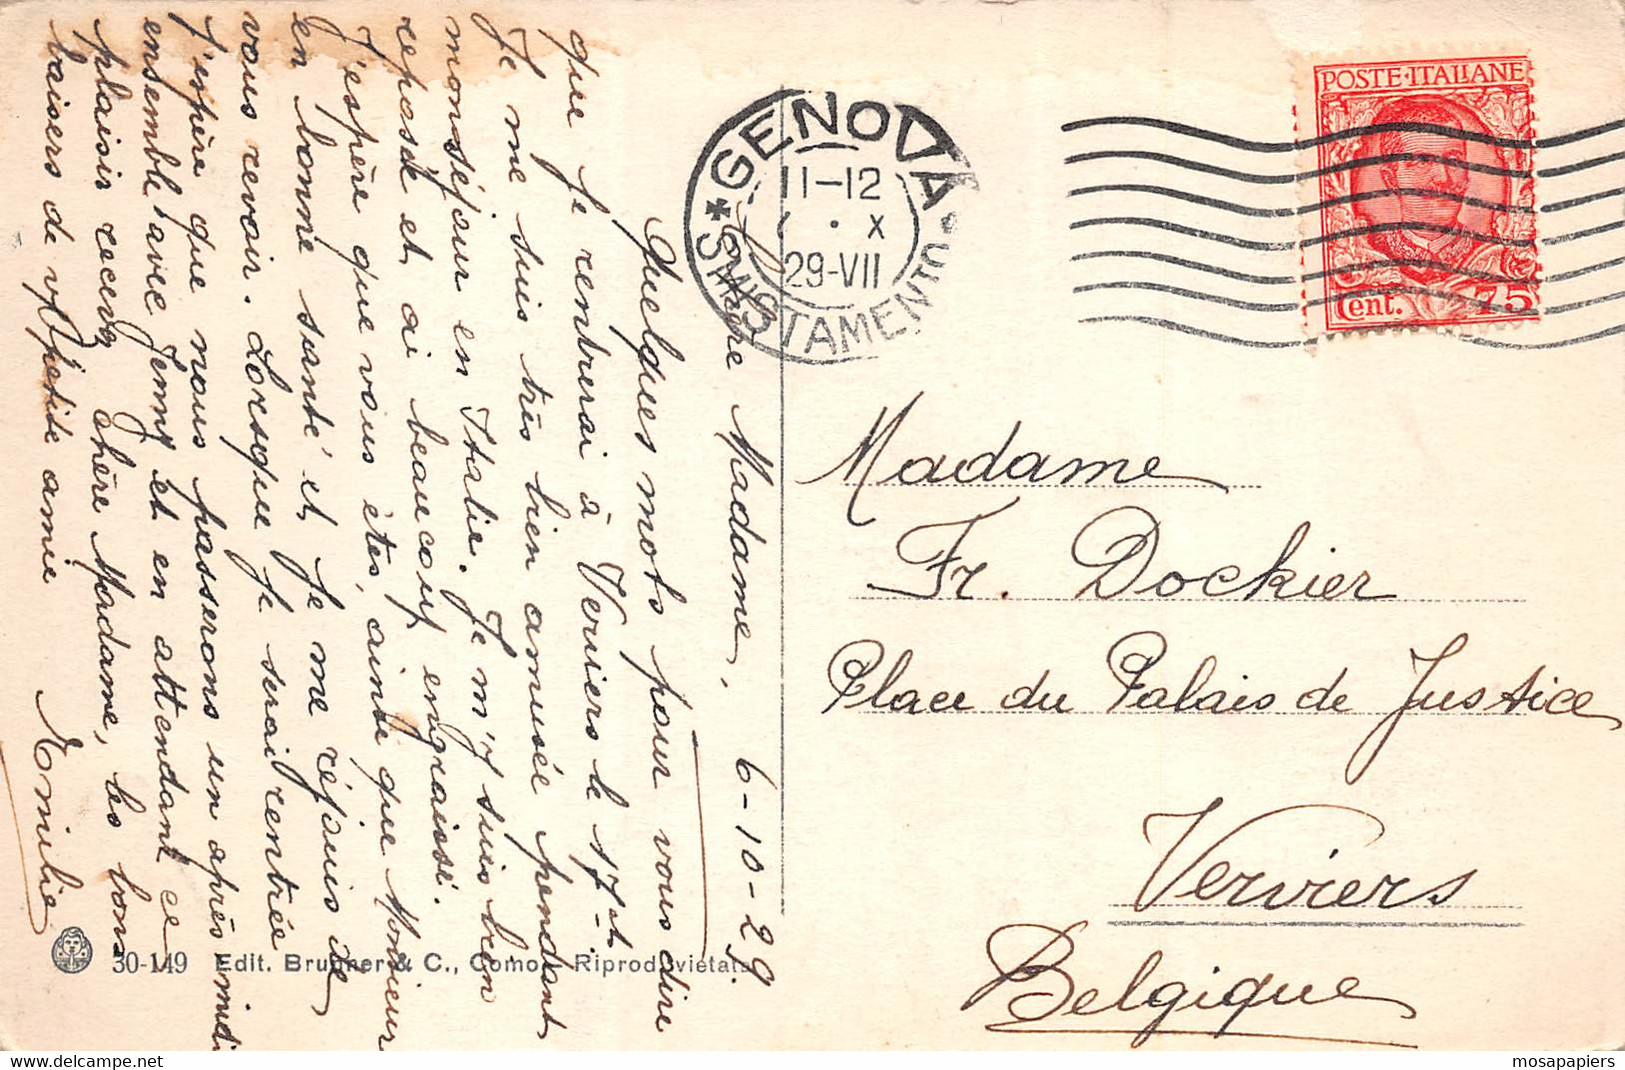 6-10-29
Chère Madame,
Quelques mots pour vous dire
que je rentrerai à Verviers le 17 ct
Je me suis très bien amusée pendant
mon séjour en Italie. Je m'y suis bien
reposée et ai beaucoup engraissé.
J'espère que vous êtes, ainsi que Monsieur
en bonne santé et je me réjouis de
vous revoir. Lorsque je serai rentrée
j'espère que nous passerons un après-midi
ensemble avec Jenny et en attendant ce
plaisir recevez chère Madame, les bons
baisers de v/petite amie
Emilie
GENOVA
11-12
X
29-VII
SMISTAMENTO
POSTE·ITALIANE
Cent. 75
Madame
Fr. Dockier
Place du Palais de Justice
Verviers
Belgique
30-149 Edit. Brunner & C., Como - Riprod. vietata
mosapapiers